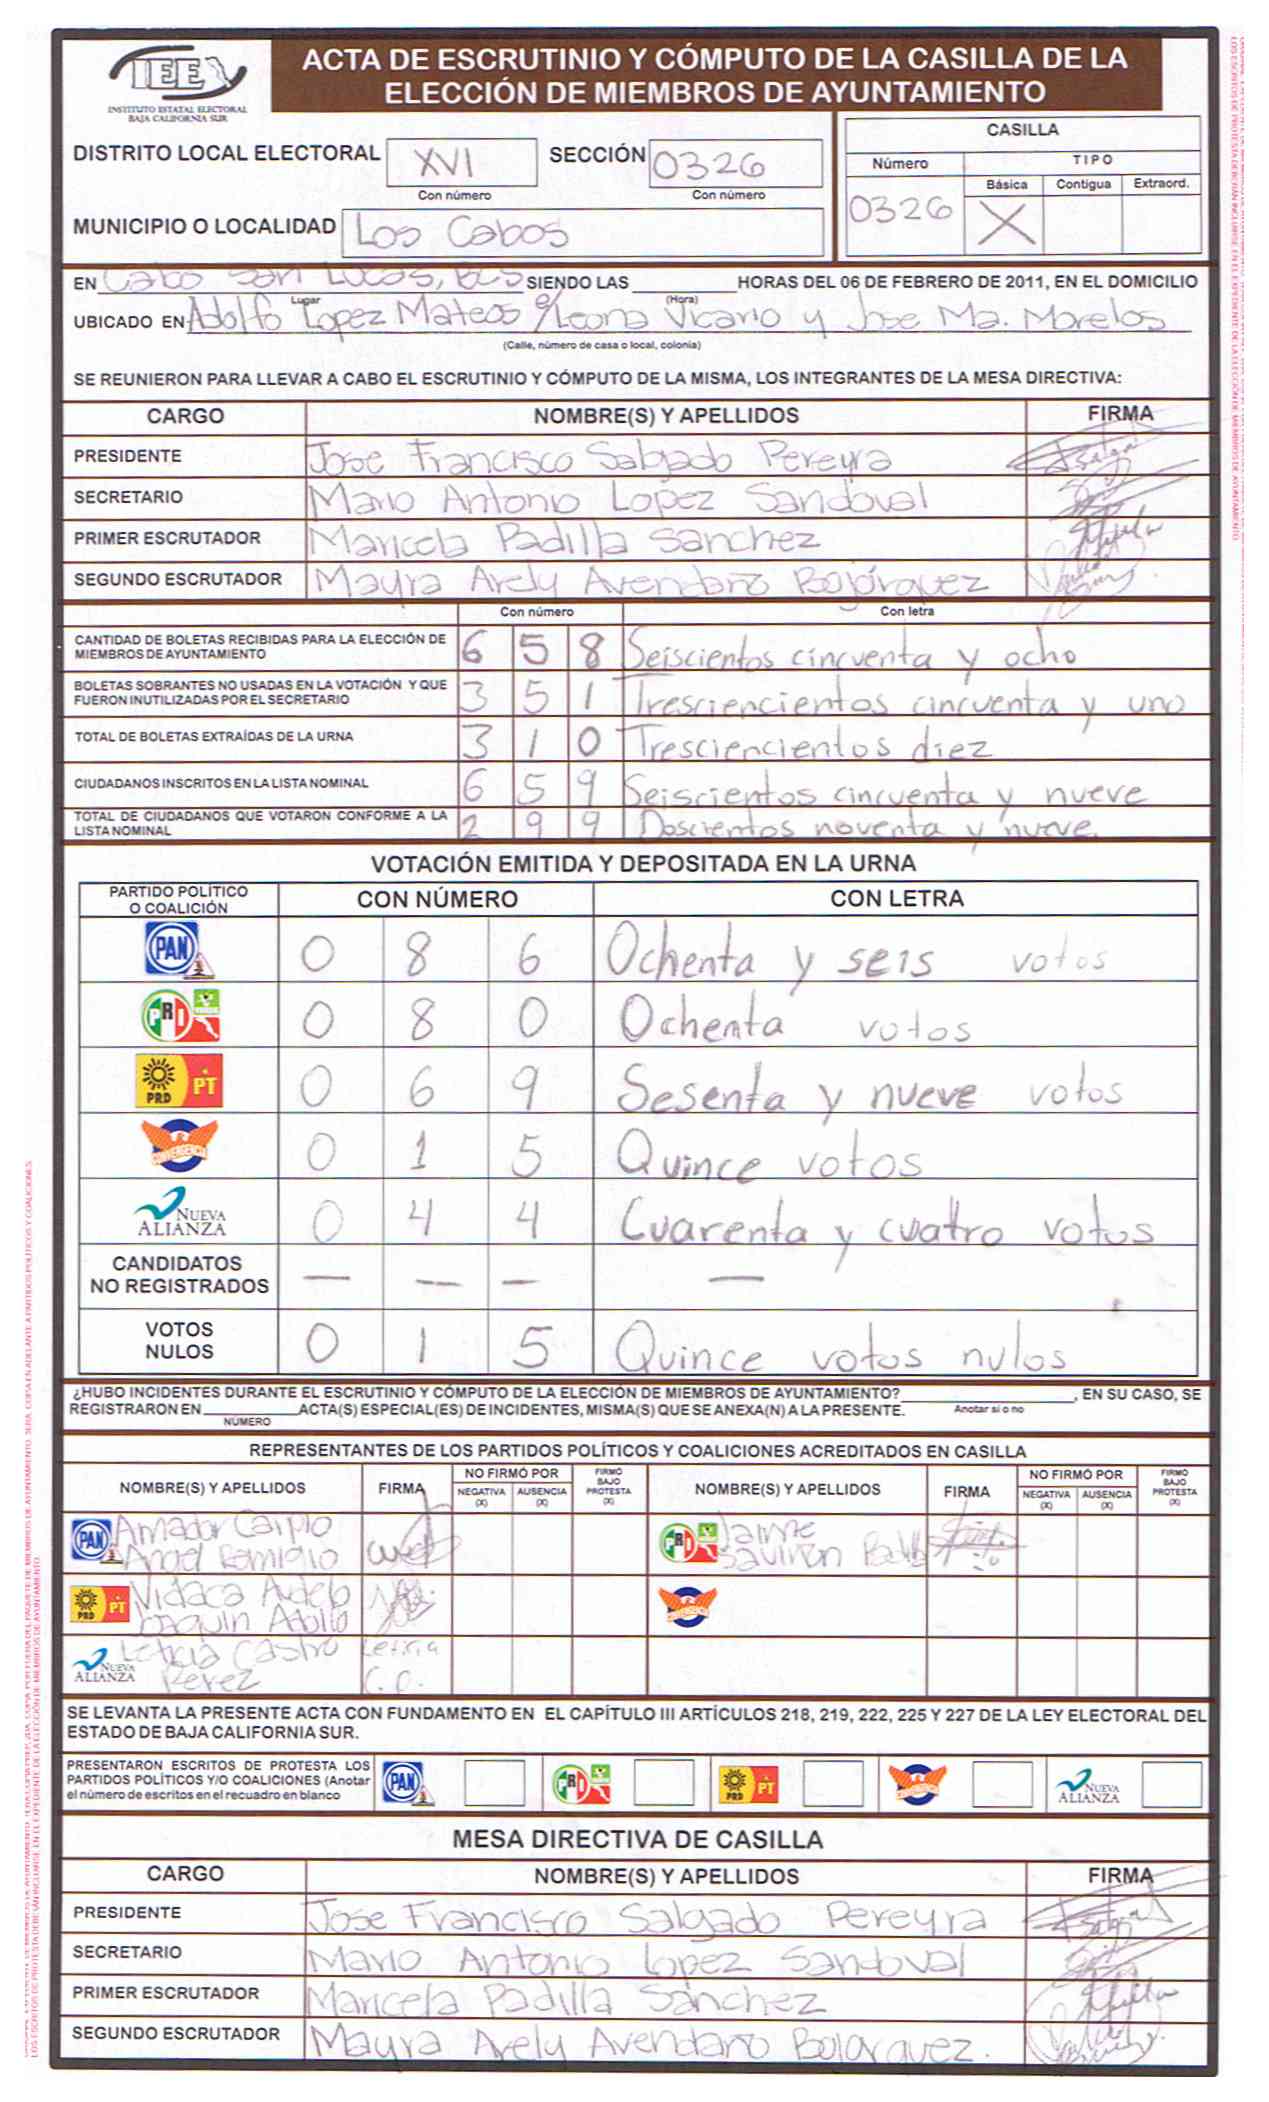 IEE
INSTITUTO ESTATAL ELECTORAL
BAJA CALIFORNIA SUR
ACTA DE ESCRUTINIO Y CÓMPUTO DE LA CASILLA DE LA
ELECCIÓN DE MIEMBROS DE AYUNTAMIENTO
DISTRITO LOCAL ELECTORAL XVI SECCIÓN 0326
Con número Con número
MUNICIPIO O LOCALIDAD Los Cabos
CASILLA
Número TIPO
Básica Contigua Extraord.
0326 X
EN Cabo San Lucas, BCS SIENDO LAS HORAS DEL 06 DE FEBRERO DE 2011, EN EL DOMICILIO
Lugar (Hora)
UBICADO EN Adolfo Lopez Mateos e/ Leona Vicario y Jose Ma. Morelos
(Calle, número de casa o local, colonia)
SE REUNIERON PARA LLEVAR A CABO EL ESCRUTINIO Y CÓMPUTO DE LA MISMA, LOS INTEGRANTES DE LA MESA DIRECTIVA:
CARGO NOMBRE(S) Y APELLIDOS FIRMA
PRESIDENTE Jose Francisco Salgado Pereyra
SECRETARIO Mario Antonio Lopez Sandoval
PRIMER ESCRUTADOR Maricela Padilla Sanchez
SEGUNDO ESCRUTADOR Mayra Arely Avendaño Bojórquez
Con número Con letra
CANTIDAD DE BOLETAS RECIBIDAS PARA LA ELECCIÓN DE
MIEMBROS DE AYUNTAMIENTO 6 5 8 Seiscientos cincuenta y ocho
BOLETAS SOBRANTES NO USADAS EN LA VOTACIÓN Y QUE
FUERON INUTILIZADAS POR EL SECRETARIO 3 5 1 Tresciencientos cincuenta y uno
TOTAL DE BOLETAS EXTRAÍDAS DE LA URNA 3 1 0 Tresciencientos diez
CIUDADANOS INSCRITOS EN LA LISTA NOMINAL 6 5 9 Seiscientos cincuenta y nueve
TOTAL DE CIUDADANOS QUE VOTARON CONFORME A LA
LISTA NOMINAL 2 9 9 Doscientos noventa y nueve
VOTACIÓN EMITIDA Y DEPOSITADA EN LA URNA
PARTIDO POLÍTICO
O COALICIÓN CON NÚMERO CON LETRA
PAN 0 8 6 Ochenta y seis votos
PRI 0 8 0 Ochenta votos
PRD PT 0 6 9 Sesenta y nueve votos
CONVERGENCIA 0 1 5 Quince votos
NUEVA
ALIANZA 0 4 4 Cuarenta y cuatro votos
CANDIDATOS
NO REGISTRADOS — — — —
VOTOS
NULOS 0 1 5 Quince votos nulos
¿HUBO INCIDENTES DURANTE EL ESCRUTINIO Y CÓMPUTO DE LA ELECCIÓN DE MIEMBROS DE AYUNTAMIENTO? , EN SU CASO, SE
REGISTRARON EN ACTA(S) ESPECIAL(ES) DE INCIDENTES, MISMA(S) QUE SE ANEXA(N) A LA PRESENTE. Anotar si o no
NÚMERO
REPRESENTANTES DE LOS PARTIDOS POLÍTICOS Y COALICIONES ACREDITADOS EN CASILLA
NOMBRE(S) Y APELLIDOS FIRMA NO FIRMÓ POR NEGATIVA (X) AUSENCIA (X) FIRMÓ BAJO PROTESTA (X) NOMBRE(S) Y APELLIDOS FIRMA NO FIRMÓ POR NEGATIVA (X) AUSENCIA (X) FIRMÓ BAJO PROTESTA (X)
PAN Amador Carpio
Angel Remigio
PRI Jaime
Saviñon Padilla
PRD PT Vidaca Audelo
Joaquin Adolfo
CONVERGENCIA
NUEVA
ALIANZA Leticia Castro
Perez Leticia
C. P.
SE LEVANTA LA PRESENTE ACTA CON FUNDAMENTO EN EL CAPÍTULO III ARTÍCULOS 218, 219, 222, 225 Y 227 DE LA LEY ELECTORAL DEL
ESTADO DE BAJA CALIFORNIA SUR.
PRESENTARON ESCRITOS DE PROTESTA LOS
PARTIDOS POLÍTICOS Y/O COALICIONES (Anotar
el número de escritos en el recuadro en blanco
PAN PRI PRD PT CONVERGENCIA NUEVA ALIANZA
MESA DIRECTIVA DE CASILLA
CARGO NOMBRE(S) Y APELLIDOS FIRMA
PRESIDENTE Jose Francisco Salgado Pereyra
SECRETARIO Mario Antonio Lopez Sandoval
PRIMER ESCRUTADOR Maricela Padilla Sanchez
SEGUNDO ESCRUTADOR Mayra Arely Avendaño Bojorquez.